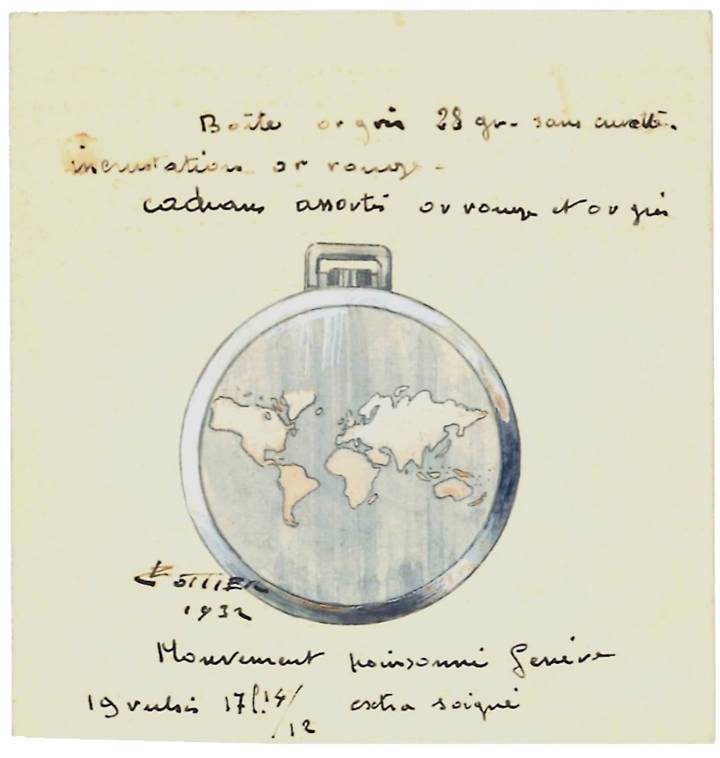 Boîte or gris 28 gr. sans cuvette.
incrustations or rouge -
cadrans assortis or rouge et or gris
COTTIER
1932
Mouvement poinsonné Genève
19 rubis 17 l. 14/12 extra soigné